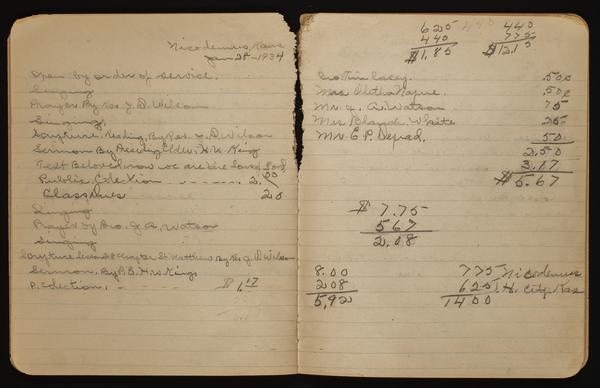 Nicodemus, Kans
Jan 28-1934
Open by order of service.
Singing
Prayer By Rev. J. D. Wilson
Singing.
Scripture Reading, By Rev. J. D. Wilson
Sermon By Presiding Elder. H. W. King
Text Beloved now we are the sons God
Public Colection - - - - - - - 2.00
Class dues 20
Singing
Prayer by Bro. J. A. Watson
Singing
Scripture lesson 28 Chapter St. Matthew By Rev J. D Wilson
Sermon, By P. E. H. W. Kings
P. Colection, - - - $1.17
625 440 440
440 775
$1,85 $12.15
Casey. .500
Mrs. .500
Mr. J. A. Watson 75
Mrs Blanch White 25
Mr E. P. 50
2,50
3.17
$5.67
$7.75
567
2.08
8.00 775 Nicodemus
208 625 H. City Kas
5,92 1400